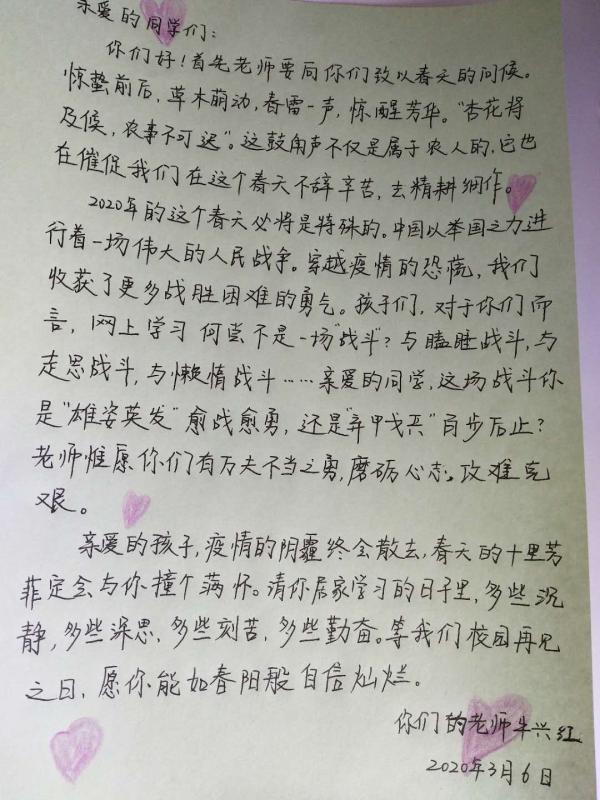 亲爱的同学们：
你们好！首先老师要向你们致以春天的问候。
惊蛰前后，草木萌动，春雷一声，惊醒芳华。“杏花将
及候，农事不可迟”。这鼓角声不仅是属于农人的，它也
在催促我们在这个春天不辞辛苦，去精耕细作。
2020年的这个春天必将是特殊的。中国以举国之力进
行着一场伟大的人民战争。穿越疫情的恐慌，我们
收获了更多战胜困难的勇气。孩子们，对于你们而
言，网上学习何尝不是一场“战斗”？与瞌睡战斗，与
走思战斗，与懒惰战斗……亲爱的同学，这场战斗你
是“雄姿英发”愈战愈勇，还是“弃甲戈兵”百步后止？
老师惟愿你们有万夫不当之勇，磨砺心志。攻难克
艰。
亲爱的孩子，疫情的阴霾终会散去，春天的十里芳
菲定会与你撞个满怀。请你居家学习的日子里，多些沉
静，多些深思，多些刻苦，多些勤奋。等我们校园再见
之日，愿你能如春阳般自信灿烂。
你们的老师牛兴红
2020年3月6日